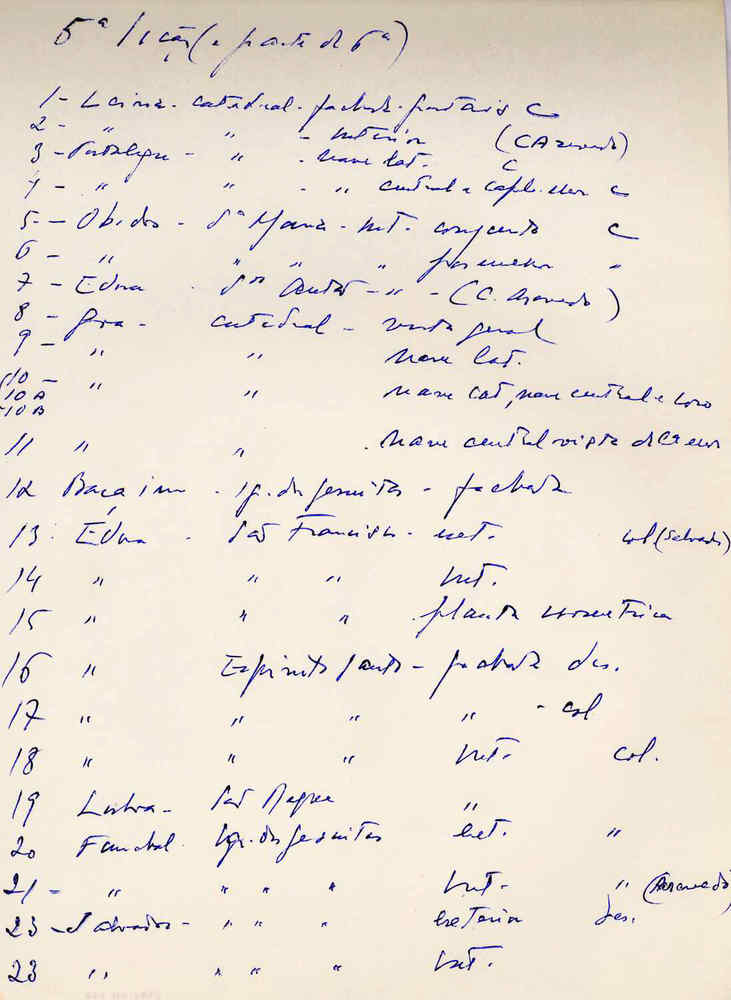 5ª lição (e parte da 6ª)
1 - Leiria - catedral - fachada - frontaria C
2 - " " - interior (C Azevedo)
3 - Portalegre - " - nave lat. C
4 - " " - " central e capl. mor C
5 - Obidos - Sª Maria - int. conjunto C
6 - " " " " pormenor "
7 - Évora - Stº Antão - " - (C. Azevedo)
8 - Goa - catedral - vista geral
9 - " " nave lat.
10 - " " nave lat, nave central e coro
10 A
10 B
11 " " . nave central vista da C. mor
12 Baçaim - Ig. dos Jesuitas - fachada
13 - Évora - São Francisco - ext. col (Salvador)
14 " " " Int.
15 " " " planta isometrica
16 " Espirito Santo - fachada des.
17 " " " " - col
18 " " " Int. col.
19 Lisboa - São Roque "
20 Funchal - Igr. dos Jesuitas Ext. "
21 - " " " " Int. - " (Azevedo)
23 - Salvador - " " " exterior des.
23 " " " " Int.